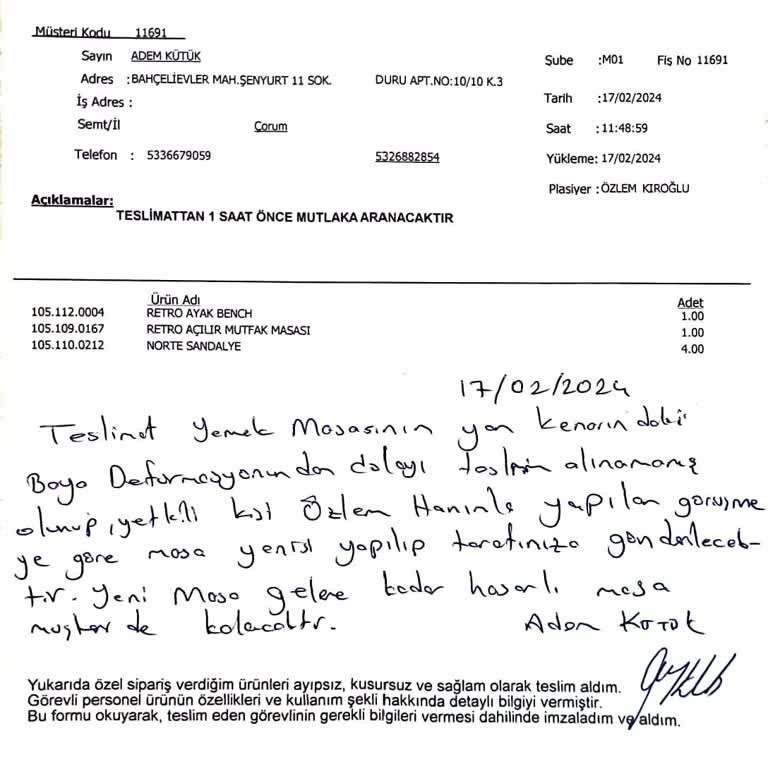 Müşteri Kodu 11691
Sayın ADEM KÜTÜK
Adres :BAHÇELİEVLER MAH.ŞENYURT 11 SOK. DURU APT.NO:10/10 K.3
İş Adres :
Semt/İl Çorum
Telefon : 5336679059 5326882854
Şube :M01 Fiş No 11691
Tarih :17/02/2024
Saat :11:48:59
Yükleme: 17/02/2024
Plasiyer :ÖZLEM KIROĞLU
Açıklamalar:
TESLİMATTAN 1 SAAT ÖNCE MUTLAKA ARANACAKTIR
Ürün Adı Adet
105.112.0004 RETRO AYAK BENCH 1.00
105.109.0167 RETRO AÇILIR MUTFAK MASASI 1.00
105.110.0212 NORTE SANDALYE 4.00
17/02/2024
Teslimat Yemek Masasının yan kenarındaki
Boya Deformasyonundan dolayı teslim alınamamış
olunup, yetkili kişi Özlem Hanımla yapılan görüşme
ye göre masa yenisi yapılıp tarafınıza gönderilecek-
tir. Yeni Masa gelene kadar hasarlı masa
müşteride kalacaktır. Adem Kütük
Yukarıda özel sipariş verdiğim ürünleri ayıpsız, kusursuz ve sağlam olarak teslim aldım.
Görevli personel ürünün özellikleri ve kullanım şekli hakkında detaylı bilgiyi vermiştir.
Bu formu okuyarak, teslim eden görevlinin gerekli bilgileri vermesi dahilinde imzaladım ve aldım.